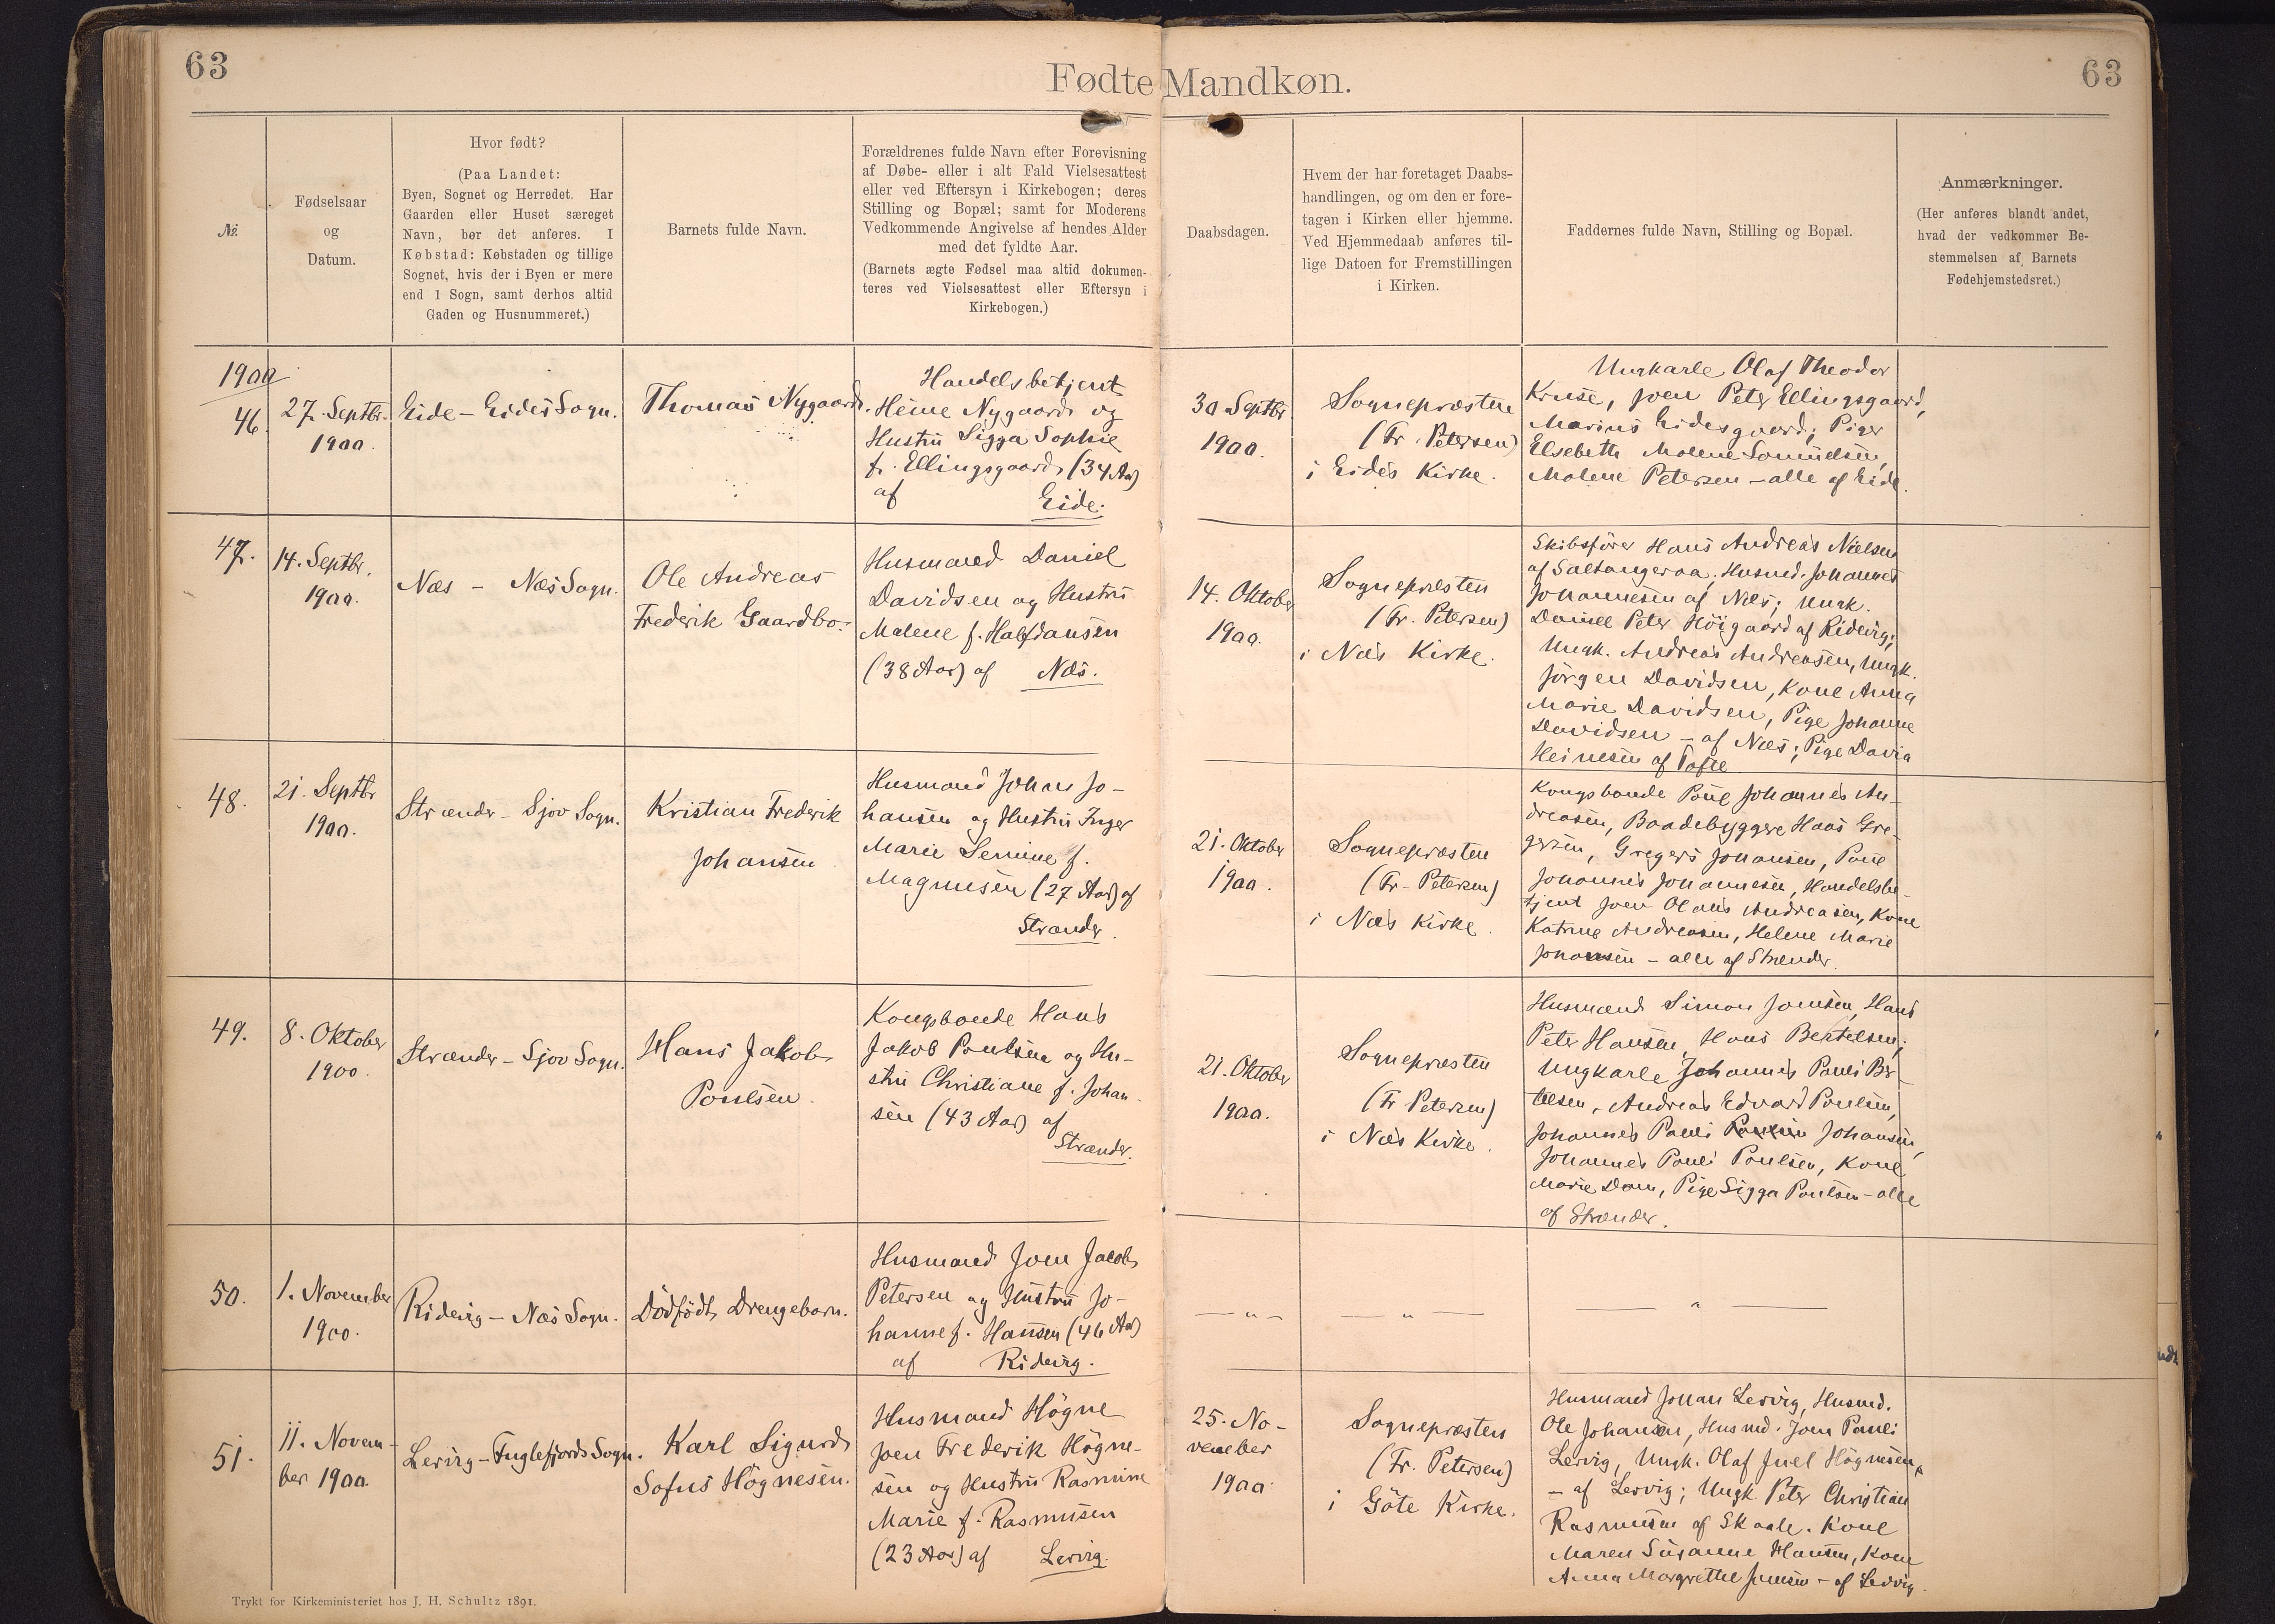 63
Fødte Mandkøn.
63
№.
Fødselsaar
og
Datum.
Hvor født?
(Paa Landet:
Byen, Sognet og Herredet. Har
Gaarden eller Huset særeget
Navn, bør det anføres. I
Købstad: Købstaden og tillige
Sognet, hvis der i Byen er mere
end 1 Sogn, samt derhos altid
Gaden og Husnummeret.)
Barnets fulde Navn.
Forældrenes fulde Navn efter Forevisning
af Døbe- eller i alt Fald Vielsesattest
eller ved Eftersyn i Kirkebogen; deres
Stilling og Bopæl; samt for Moderens
Vedkommende Angivelse af hendes Alder
med det fyldte Aar.
(Barnets ægte Fødsel maa altid dokumen-
teres ved Vielsesattest eller Eftersyn i
Kirkebogen.)
Daabsdagen.
Hvem der har foretaget Daabs-
handlingen, og om den er fore-
tagen i Kirken eller hjemme.
Ved Hjemmedaab anføres til-
lige Datoen for Fremstillingen
i Kirken.
Faddernes fulde Navn, Stilling og Bopæl.
Anmærkninger.
(Her anføres blandt andet,
hvad der vedkommer Be-
stemmelsen af Barnets
Fødehjemstedsret.)
1900
46.
27. Septbr.
1900.
Eide - Eides Sogn.
Thomas Nygaard.
Handelsbetjent
Heine Nygaard og
Hustru Sigga Sophie
f. Ellingsgaard (34 Aar)
af Eide.
30 Septbr
1900.
Sognepræsten
(Fr. Petersen)
i Eides Kirke.
Ungkarle Olaf Theodor
Kruse, Joen Peter Ellingsgaard,
Marius Eidesgaard; Piger
Elsebeth Malene Samuelsen,
Malene Petersen - alle af Eide.
47.
14. Septbr.
1900.
Næs - Næs Sogn.
Ole Andreas
Frederik Gaardbo.
Husmand Daniel
Davidsen og Hustru
Malene f. Halfdansen
(38 Aar) af Næs.
14. Oktober
1900.
Sognepræsten
(Fr. Petersen)
i Næs Kirke.
Skibsfører Hans Andreas Nielsen
af Saltangeraa, Husmd. Johannes
Johannesen af Næs; Ungk.
Daniel Peter Höigaard af Ridevig;
Ungk. Andreas Andreasen, Ungk.
Jörgen Davidsen, Kone Anna
Marie Davidsen, Pige Johanne
Davidsen - af Næs; Pige Davia
Heinesen af Tofte
48.
21. Septbr
1900.
Strænder - Sjov Sogn.
Kristian Frederik
Johansen
Husmand Johan Jo-
hansen og Hustru Inger
Marie Semine f.
Magnusen (27 Aar) af
Strænder.
21. Oktober
1900.
Sognepræsten
(Fr. Petersen)
i Næs Kirke.
Kongsbonde Poul Johannes An-
dreasen, Baadebyggere Hans Gre-
gersen, Gregers Johansen, Poul
Johannes Johannesen, Handelsbe-
tjent Joen Olaus Andreasen, Kone
Katrine Andreasen, Helene Marie
Johansen - alle af Strænder.
49.
8. Oktober
1900.
Strænder - Sjov Sogn.
Hans Jakob
Poulsen.
Kongsbonde Hans
Jakob Poulsen og Hu-
stru Christiane f. Johan-
sen (43 Aar) af
Strænder.
21. Oktober
1900.
Sognepræsten
(Fr Petersen)
i Næs Kirke.
Husmænd Simon Joensen, Hans
Peter Hansen, Hans Bertelsen;
Ungkarle Johannes Pauli Ber-
telsen, Andreas Edvard Poulsen,
Johannes Pauli Johansen,
Johannes Pauli Poulsen, Kone
Marie Dam, Pige Sigga Poulsen - alle
af Strænder.
50.
1. November
1900.
Ridevig - Næs Sogn.
Dödfödt Drengebarn.
Husmand Joen Jacob
Petersen og Hustru Jo-
hanne f. Hansen (46 Aar)
af Ridevig.
— " —
— " —
— " —
51.
11. Novem-
ber 1900.
Lervig - Fuglefjords Sogn.
Karl Sigurd
Sofus Högnesen.
Husmand Högne
Joen Frederik Högne-
sen og Hustru Rasmine
Marie f. Rasmusen
(23 Aar) af Lervig.
25. No-
vember
1900
Sognepræsten
(Fr. Petersen)
i Göte Kirke.
Husmand Johan Lervig, Husmd.
Ole Johansen, Husmd. Joen Pauli
Lervig, Ungk. Olaf Juel Högnesen,
- af Lervig; Ungk. Peter Christian
Rasmusen af Skaale. Kone
Maren Susanne Hansen, Kone
Anna Margrethe Joensen - af Lervig.
Trykt for Kirkeministeriet hos J. H. Schultz 1891.